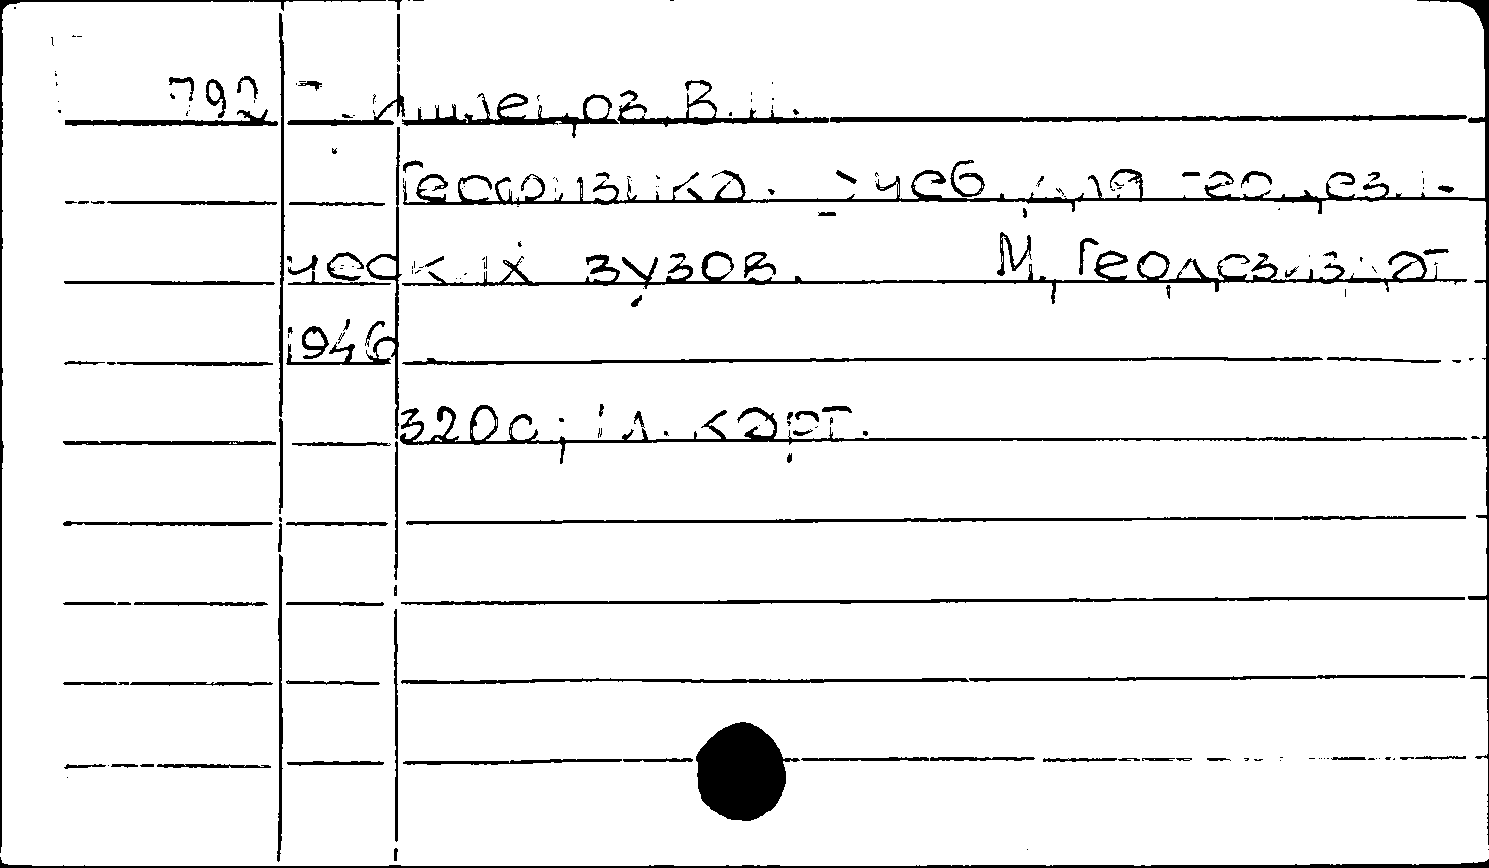 792 Тишлецов В.И.
Геофизика. Учеб. для геодези-
ческих вузов. М, Геодезиздат
1946
320с; 1л. карт.